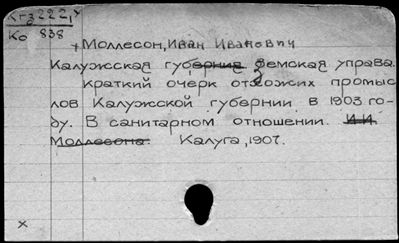 Кгз 222,1
Ко 838
+ Моллесон, Иван Иванович
Калужская губерния земская управа.
Краткий очерк отхожих промыс
лов Калужской губернии в 1903 го-
ду. В санитарном отношении. И.И.
Моллесона. Калуга, 1907.
x